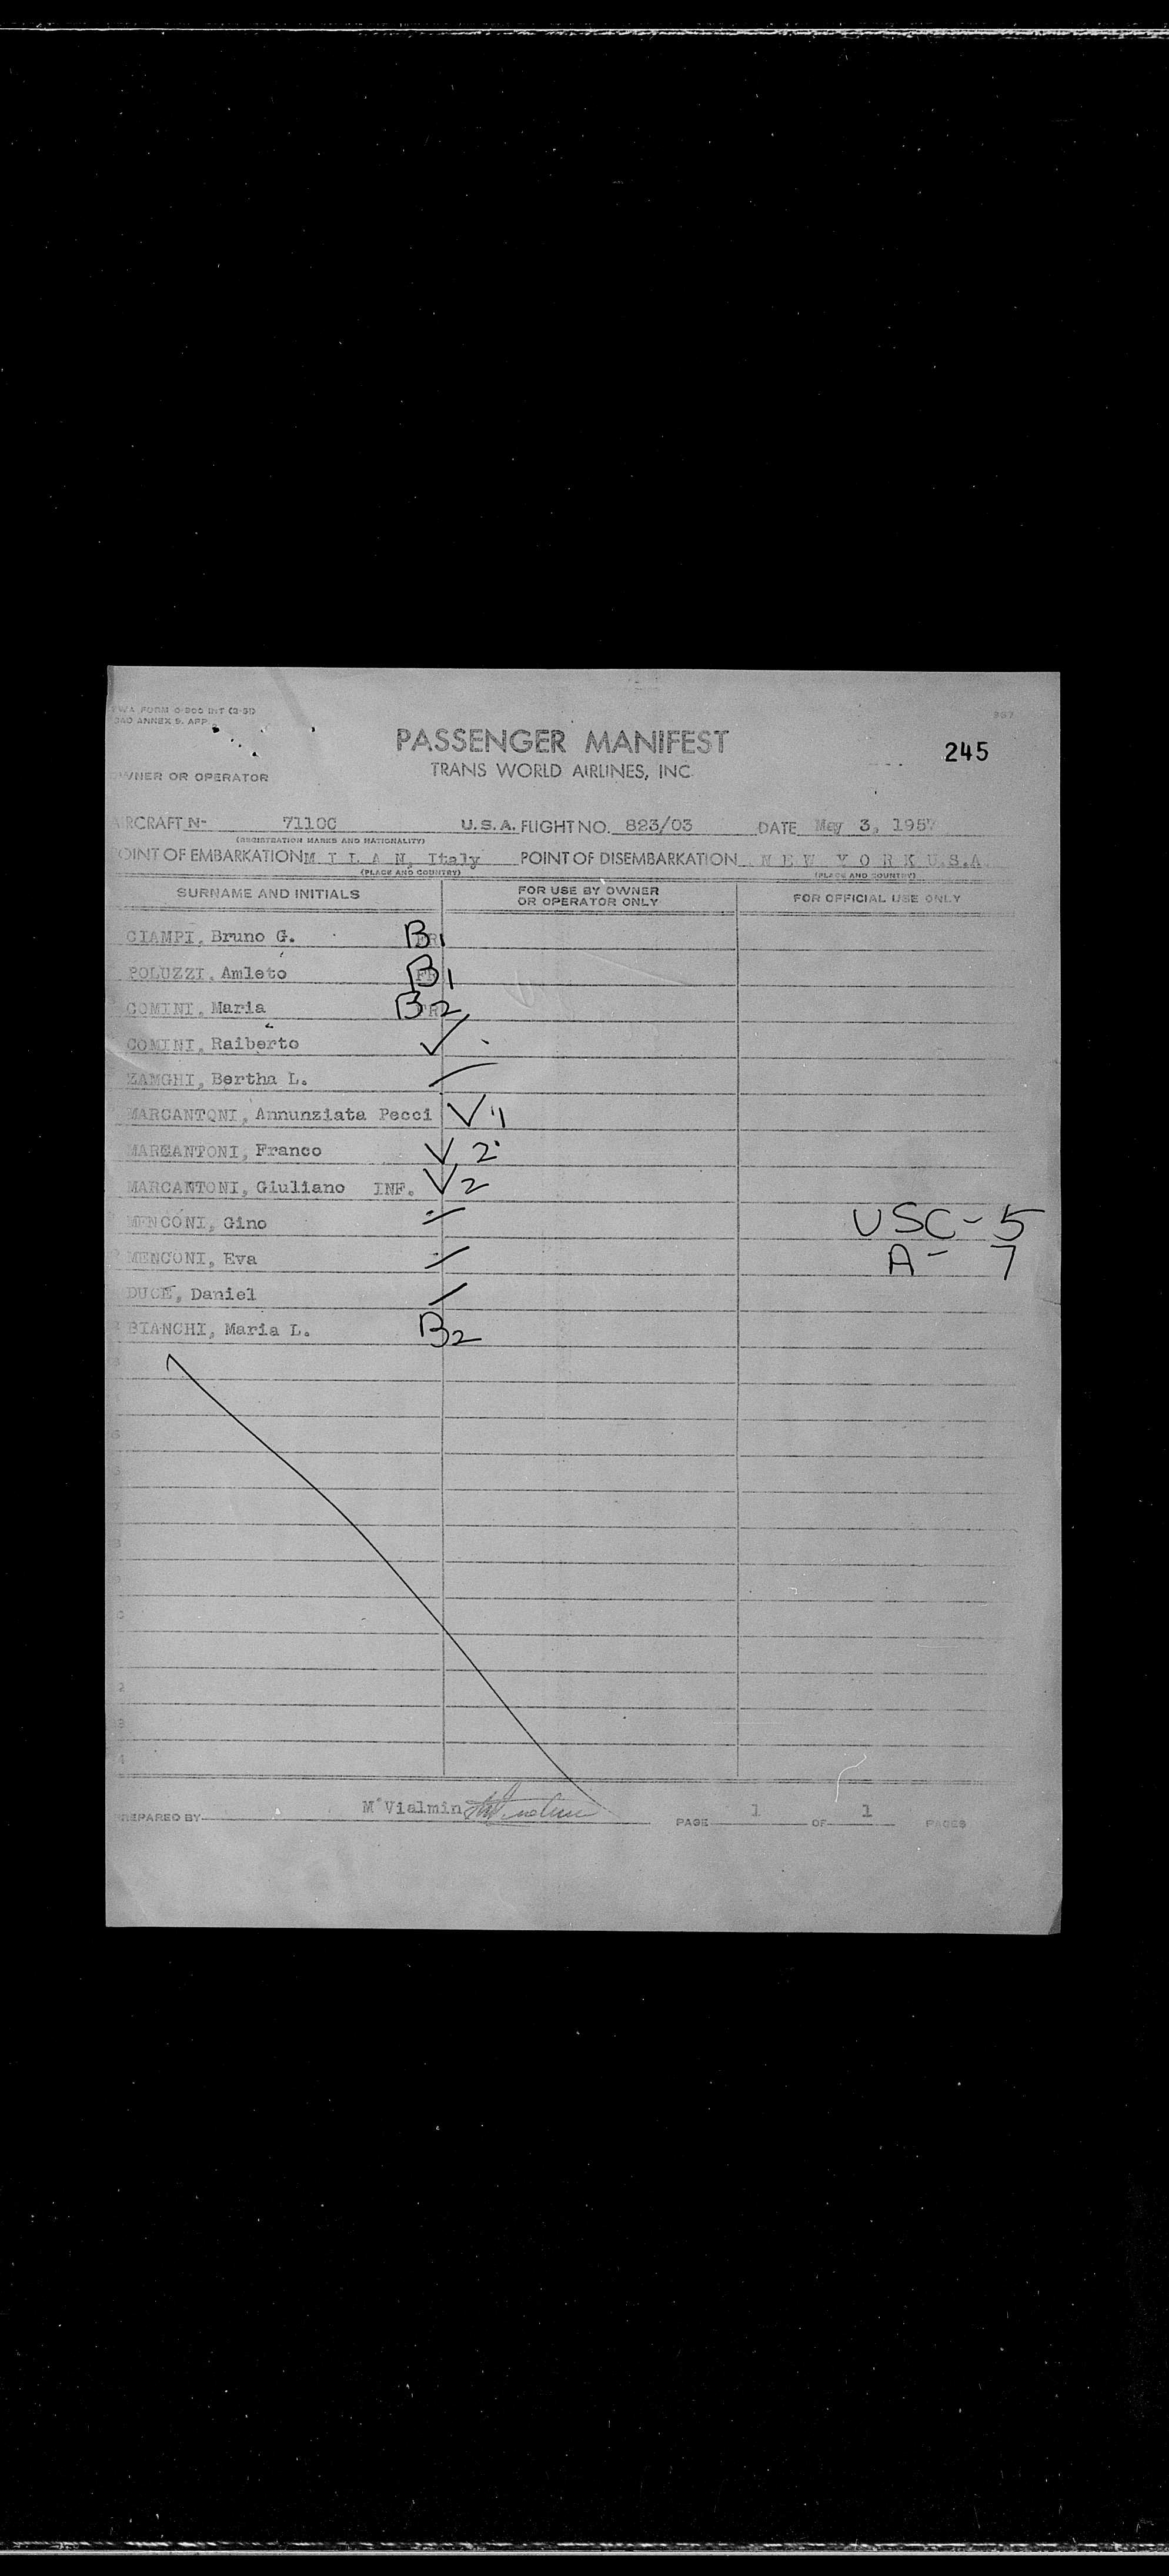 TWA FORM O-800 INT (2-51)
ICAO ANNEX 9. APP.
PASSENGER MANIFEST
245
TRANS WORLD AIRLINES, INC.
OWNER OR OPERATOR
AIRCRAFT N- 7110C U.S.A. FLIGHT NO. 823/03 DATE May 3, 1957
(REGISTRATION MARKS AND NATIONALITY)
POINT OF EMBARKATION M I L A N, Italy POINT OF DISEMBARKATION N E W Y O R K U.S.A.
(PLACE AND COUNTRY) (PLACE AND COUNTRY)
SURNAME AND INITIALS FOR USE BY OWNER OR OPERATOR ONLY FOR OFFICIAL USE ONLY
CIAMPI, Bruno G. B1
POLUZZI, Amleto B1
COMINI, Maria B2
COMINI, Raiberto ✓
ZAMGHI, Bertha L.
MARCANTONI, Annunziata Pecci V1
MARCANTONI, Franco V2
MARCANTONI, Giuliano INF. V2
MENCONI, Gino USC - 5
MENCONI, Eva A - 7
DUCE, Daniel
BIANCHI, Maria L. B2
PREPARED BY M°Vialmin PAGE 1 OF 1 PAGES